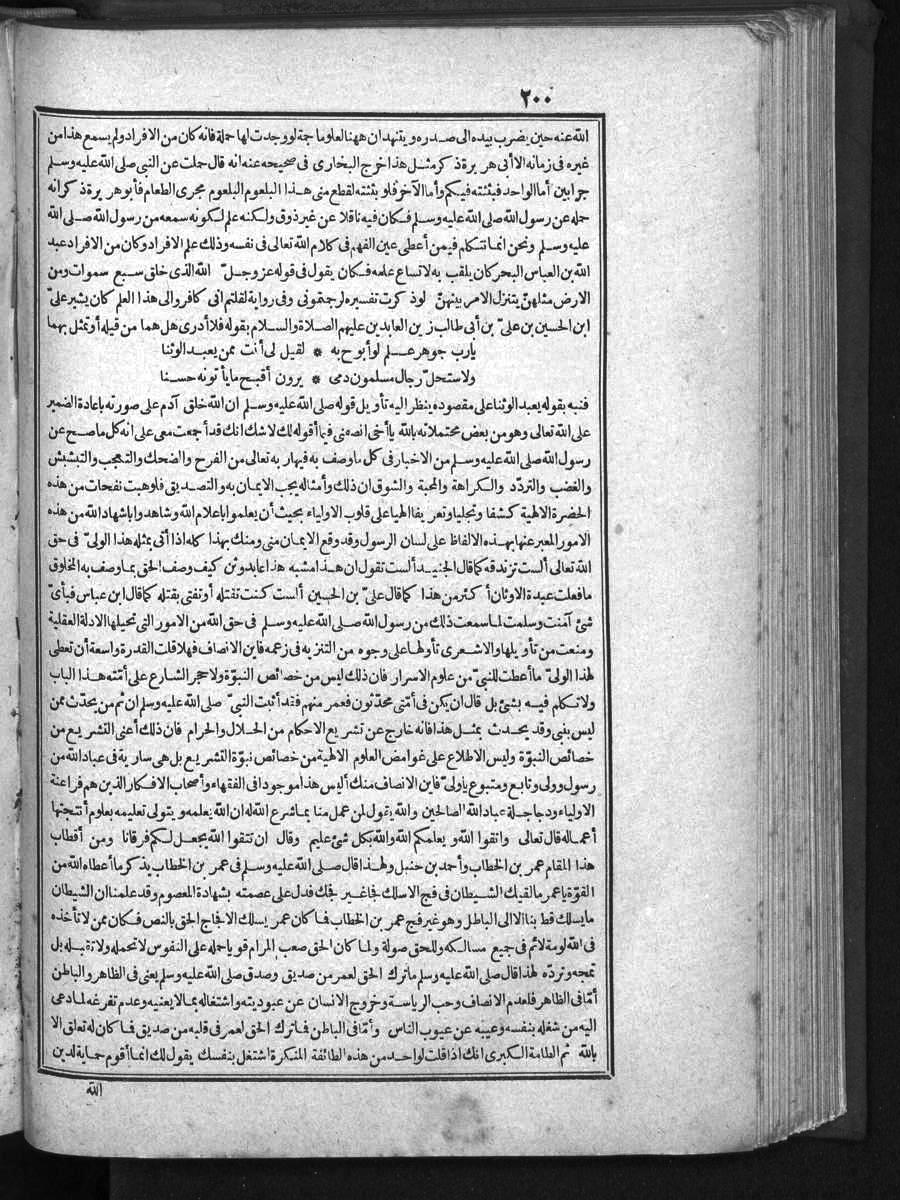 ٢٠٠
الله عنه حين يضرب بيده الى صدره ويتنهد ان ههنا لعلوما جمة لو وجدت لها حملة فانه كان من الافراد ولم يسمع هذا من
غيره في زمانه الا أبى هريرة ذكر مثل هذا خرج البخارى فى صحيحه عنه انه قال حملت عن النبى صلى الله عليه وسلم
جرابين أما الواحد فبثثته فيكم وأما الآخر فلو بثثته لقطع منى هذا البلعوم البلعوم مجرى الطعام فأبو هريرة ذكر انه
حمله عن رسول الله صلى الله عليه وسلم فكان فيه ناقلا عن غير ذوق ولكنه علم لكونه سمعه من رسول الله صلى الله
عليه وسلم ونحن انما نتكلم فيمن أعطى عين الفهم فى كلام الله تعالى فى نفسه وذلك علم الافراد وكان من الافراد عبد
الله بن العباس البحر كان يلقب به لاتساع علمه فكان يقول فى قوله عز وجل الله الذى خلق سبع سموات ومن
الارض مثلهن يتنزل الامر بينهن لو ذكرت تفسيره لرجمتمونى وفى رواية لقلتم انى كافر والى هذا العلم كان يشير علىّ
ابن الحسين بن علىّ بن أبى طالب زين العابدين عليهم الصلاة والسلام بقوله فلا أدرى هل هما من قيله أو تمثل بهما
يارب جوهر علم لو أبوح به * لقيل لى أنت ممن يعبد الوثنا
ولاستحلّ رجال مسلمون دمى * يرون أقبح ما يأتونه حسنا
فنبه بقوله يعبد الوثنا على مقصوده ينظر اليه تأويل قوله صلى الله عليه وسلم ان الله خلق آدم على صورته باعادة الضمير
على الله تعالى وهو من بعض محتملاته بالله يا أخى انصفنى فيما أقوله لك لاشك انك قد أجمعت معى على انه كل ما صح عن
رسول الله صلى الله عليه وسلم من الاخبار فى كل ما وصف به فيها ربه تعالى من الفرح والضحك والتعجب والتبشبش
والغضب والتردّد والكراهة والمحبة والشوق ان ذلك وأمثاله يجب الايمان به والتصديق فلو هبت نفحات من هذه
الحضرة الالهية كشفا وتجليا وتعريفا الهيا على قلوب الاولياء بحيث أن يعلموا باعلام الله وشاهدوا باشهاد الله من هذه
الامور المعبر عنها بهذه الالفاظ على لسان الرسول وقد وقع الايمان منى ومنك بهذا كله اذا أتى بمثله هذا الولىّ فى حق
الله تعالى ألست تزندقه كما قال الجنيد ألست تقول ان هذا مشبه هذا عابد وثن كيف وصف الحق بما وصف به المخلوق
ما فعلت عبدة الاوثان أكثر من هذا كما قال علىّ بن الحسين ألست كنت تقتله أو تفتى بقتله كما قال ابن عباس فبأىّ
شئ آمنت وسلمت لما سمعت ذلك من رسول الله صلى الله عليه وسلم فى حق الله من الامور التى تحيلها الادلة العقلية
ومنعت من تأويلها والاشعرى تأولها على وجوه من التنزيه فى زعمه فاين الانصاف فهلا قلت القدرة واسعة أن تعطى
لهذا الولىّ ما أعطت للنبىّ من علوم الاسرار فان ذلك ليس من خصائص النبوّة ولا حجر الشارع على أمّته هذا الباب
ولا تكلم فيه بشئ بل قال ان يكن فى أمّتى محدّثون فعمر منهم فقد أثبت النبىّ صلى الله عليه وسلم ان ثم من يحدّث ممن
ليس بنبى وقد يحدث بمثل هذا فانه خارج عن تشريع الاحكام من الحلال والحرام فان ذلك أعنى التشريع من
خصائص النبوّة وليس الاطلاع على غوامض العلوم الالهية من خصائص نبوّة التشريع بل هى سارية فى عباد الله من
رسول وولى وتابع ومتبوع ياولىّ فاين الانصاف منك أليس هذا موجودا فى الفقهاء وأصحاب الافكار الذين هم فراعنة
الاولياء ودجاجلة عباد الله الصالحين والله يقول لمن عمل منا بما شرع الله له ان الله يعلمه ويتولى تعليمه بعلوم أنتجتها
أعماله قال تعالى واتقوا الله ويعلمكم الله والله بكل شئ عليم وقال ان تتقوا الله يجعل لكم فرقانا ومن أقطاب
هذا المقام عمر بن الخطاب وأحمد بن حنبل ولهذا قال صلى الله عليه وسلم فى عمر بن الخطاب يذكر ما أعطاه الله من
القوّة ياعمر ما لقيك الشيطان فى فج الا سلك فجا غير فجك فدل على عصمته بشهادة المعصوم وقد علمنا ان الشيطان
ما يسلك قط بنا الا الى الباطل وهو غير فج عمر بن الخطاب فما كان عمر يسلك الا فجاج الحق بالنص فكان ممن لا تأخذه
فى الله لومة لائم فى جميع مسالكه وللحق صولة ولما كان الحق صعب المرام قويا حمله على النفوس لا تحمله ولا تقبله بل
تمجه وتردّه لهذا قال صلى الله عليه وسلم ما ترك الحق لعمر من صديق وصدق صلى الله عليه وسلم يعنى فى الظاهر والباطن
أمّا فى الظاهر فلعدم الانصاف وحب الرياسة وخروج الانسان عن عبوديته واشتغاله بما لا يعنيه وعدم تفرغه لما دعى
اليه من شغله بنفسه وعيبه عن عيوب الناس وأمّا فى الباطن فما ترك الحق لعمر فى قلبه من صديق فما كان له تعلق الا
بالله ثم الطامة الكبرى انك اذا قلت لواحد من هذه الطائفة المنكرة اشتغل بنفسك يقول لك انما أقوم حماية لدين
الله